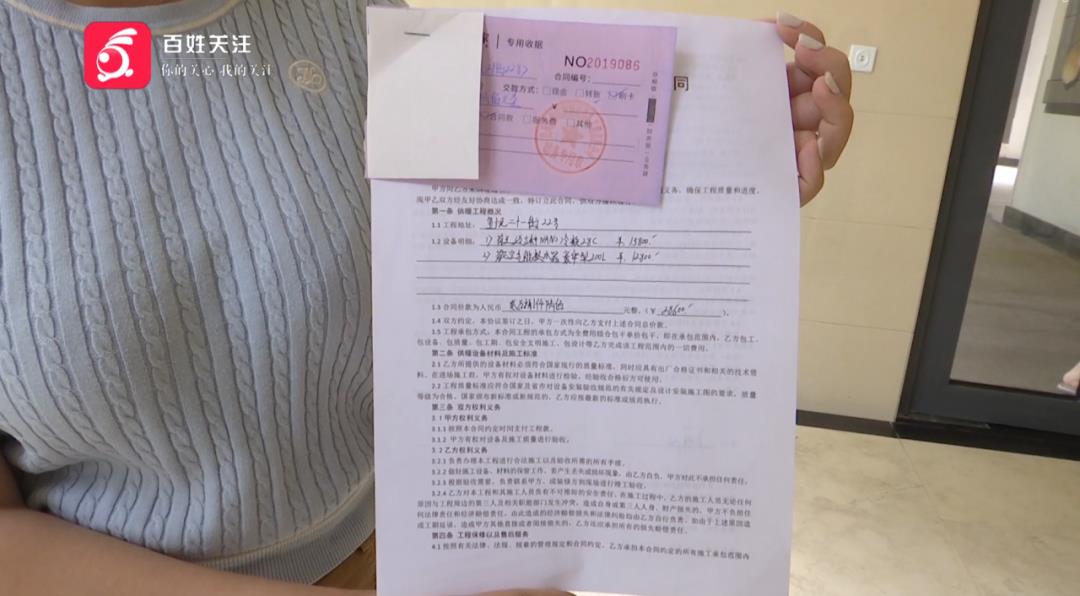 百姓关注
你的关心 我的关注
专用收据
NO2019086
合同编号:
交款方式: □现金 □转账 刷卡
合同款 □服务费 □其他
同
义务, 确保工程质量和进度,
第一条 供暖工程概况
1.1 工程地址: 二十一街22号
1.2 设备明细: 1) 28C 13800
2) 200L 12800
1.3 合同价款为人民币 元整,(¥ ).
1.4 双方约定, 本协议签订之日, 甲方一次性向乙方支付上述合同总价款。
1.5 工程承包方式: 本合同工程的承包方式为全费用综合包干单价包干, 即在承包范围内, 乙方包工、
包设备、包质量、包工期、包安全文明施工、包设计等乙方完成该工程范围内的一切费用。
第二条 供暖设备材料及施工标准
2.1 乙方所提供的设备材料必须符合国家现行的质量标准, 同时应具有出厂合格证书和相关的技术资
料。在进场施工前, 甲方有权对设备材料进行检验, 经验收合格后方可使用。
2.2 工程质量标准应符合国家及省市对设备安装验收规范的有关规定及设计安装施工图的要求, 质量
等级为合格。国家颁布新标准或新规范的, 乙方应按最新的标准或规范执行。
第三条 双方权利义务
3.1 甲方权利义务
3.1.1 按照本合同约定时间支付工程款。
3.1.2 甲方有权对设备及施工质量进行验收。
3.2 乙方权利义务
3.2.1 负责办理本工程进行合法施工以及验收所需的所有手续。
3.2.2 做好施工设备、材料的保管工作, 若产生丢失或损坏现象, 由乙方自负, 甲方对此不承担任何责任。
3.2.3 根据验收需要, 负责联系甲方, 或装修方到现场进行隐工验收。
3.2.4 乙方对本工程和其施工人员负有不可推卸的安全责任, 在施工过程中, 乙方的施工人员无论任何
原因与工程周边的第三人及相关职能部门发生冲突, 造成自身或第三人人身、财产损失的, 甲方不负担任
何法律责任和经济赔偿责任, 由此造成的经济赔偿损失和法律纠纷均由乙方自行负责。如由于上述原因造
成工期延误, 造成甲方其他直接或者间接损失的, 乙方还应承担所有的损失赔偿责任。
第四条 工程保修以及售后服务
4.1 按照有关法律、法规、规章的管理规定和合同约定, 乙方承担本合同约定的所有施工承包范围内